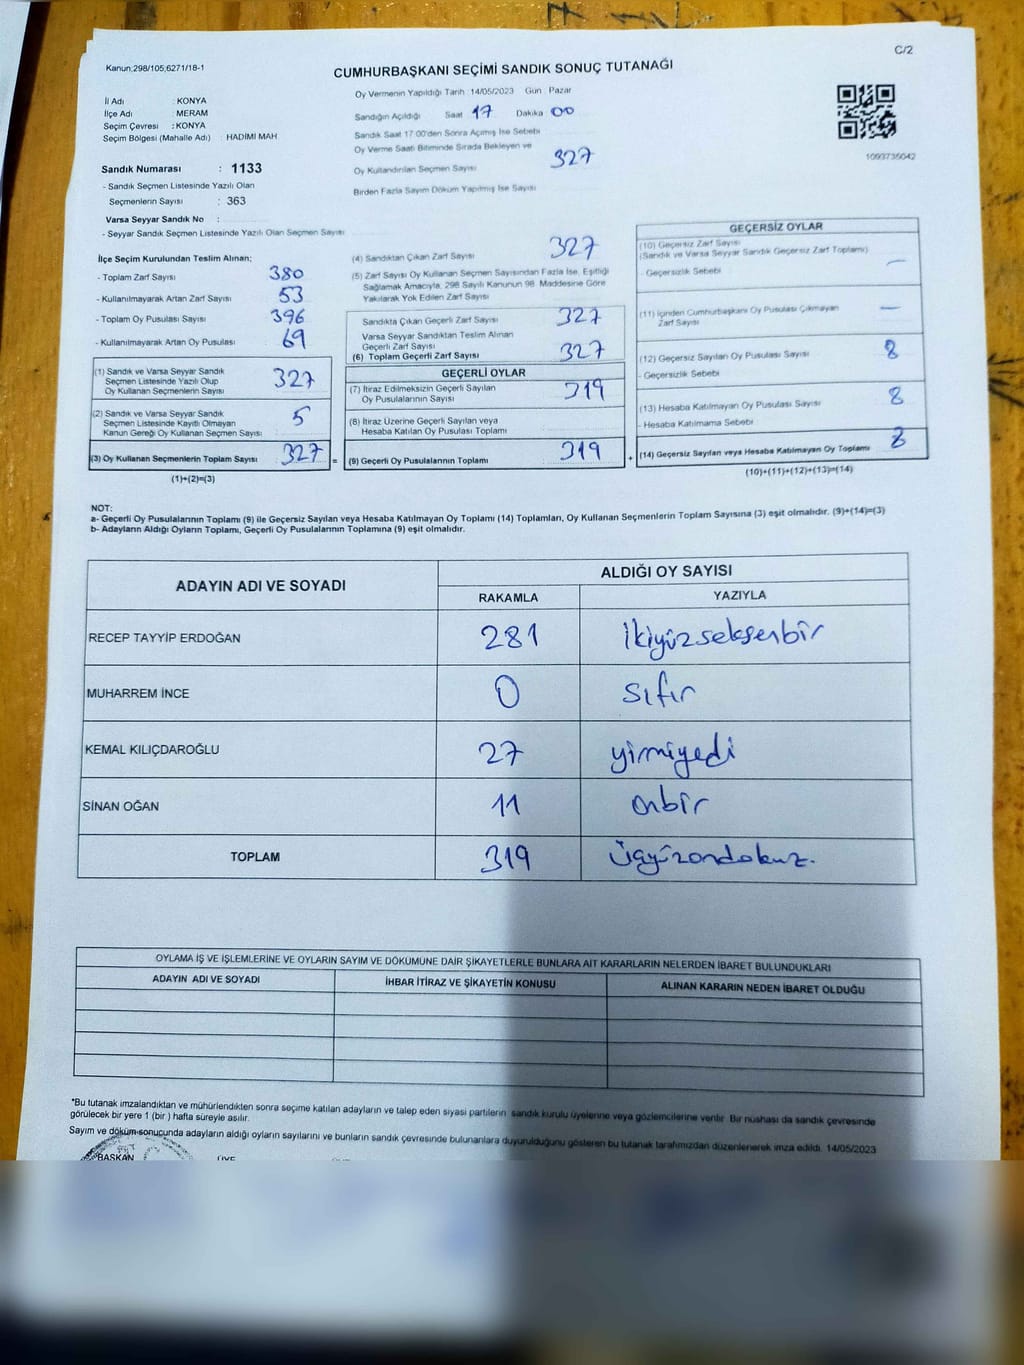 C/2
Kanun;298/105;6271/18-1
CUMHURBAŞKANI SEÇİMİ SANDIK SONUÇ TUTANAĞI
İl Adı : KONYA
İlçe Adı : MERAM
Seçim Çevresi : KONYA
Seçim Bölgesi (Mahalle Adı) : HADİMİ MAH
Sandık Numarası : 1133
- Sandık Seçmen Listesinde Yazılı Olan
Seçmenlerin Sayısı : 363
Varsa Seyyar Sandık No :
- Seyyar Sandık Seçmen Listesinde Yazılı Olan Seçmen Sayısı
Oy Vermenin Yapıldığı Tarih :14/05/2023 Gün : Pazar
Sandığın Açıldığı Saat 17 Dakika 00
Sandık Saat 17:00'den Sonra Açılmış İse Sebebi
Oy Verme Saati Bitiminde Sırada Bekleyen ve
Oy Kullandırılan Seçmen Sayısı 327
Birden Fazla Sayım Döküm Yapılmış İse Sayısı
1093735042
İlçe Seçim Kurulundan Teslim Alınan;
- Toplam Zarf Sayısı 380
- Kullanılmayarak Artan Zarf Sayısı 53
- Toplam Oy Pusulası Sayısı 396
- Kullanılmayarak Artan Oy Pusulası 69
(1) Sandık ve Varsa Seyyar Sandık
Seçmen Listesinde Yazılı Olup
Oy Kullanan Seçmenlerin Sayısı 327
(2) Sandık ve Varsa Seyyar Sandık
Seçmen Listesinde Kayıtlı Olmayan
Kanun Gereği Oy Kullanan Seçmen Sayısı 5
(3) Oy Kullanan Seçmenlerin Toplam Sayısı 327 =
(1)+(2)=(3)
(4) Sandıktan Çıkan Zarf Sayısı 327
(5) Zarf Sayısı Oy Kullanan Seçmen Sayısından Fazla İse, Eşitliği
Sağlamak Amacıyla, 298 Sayılı Kanunun 98. Maddesine Göre
Yakılarak Yok Edilen Zarf Sayısı
Sandıkta Çıkan Geçerli Zarf Sayısı 327
Varsa Seyyar Sandıktan Teslim Alınan
Geçerli Zarf Sayısı
(6) Toplam Geçerli Zarf Sayısı 327
GEÇERLİ OYLAR
(7) İtiraz Edilmeksizin Geçerli Sayılan
Oy Pusulalarının Sayısı 319
(8) İtiraz Üzerine Geçerli Sayılan veya
Hesaba Katılan Oy Pusulası Toplamı
(9) Geçerli Oy Pusulalarının Toplamı 319 +
GEÇERSİZ OYLAR
(10) Geçersiz Zarf Sayısı
(Sandık ve Varsa Seyyar Sandık Geçersiz Zarf Toplamı) —
- Geçersizlik Sebebi
(11) İçinden Cumhurbaşkanı Oy Pusulası Çıkmayan
Zarf Sayısı —
(12) Geçersiz Sayılan Oy Pusulası Sayısı 8
- Geçersizlik Sebebi
(13) Hesaba Katılmayan Oy Pusulası Sayısı 8
- Hesaba Katılmama Sebebi
(14) Geçersiz Sayılan veya Hesaba Katılmayan Oy Toplamı 8
(10)+(11)+(12)+(13)=(14)
NOT:
a- Geçerli Oy Pusulalarının Toplamı (9) ile Geçersiz Sayılan veya Hesaba Katılmayan Oy Toplamı (14) Toplamları, Oy Kullanan Seçmenlerin Toplam Sayısına (3) eşit olmalıdır. (9)+(14)=(3)
b- Adayların Aldığı Oyların Toplamı, Geçerli Oy Pusulalarının Toplamına (9) eşit olmalıdır.
ADAYIN ADI VE SOYADI ALDIĞI OY SAYISI
RAKAMLA YAZIYLA
RECEP TAYYİP ERDOĞAN 281 İkiyüzseksenbir
MUHARREM İNCE 0 sıfır
KEMAL KILIÇDAROĞLU 27 yirmiyedi
SİNAN OĞAN 11 onbir
TOPLAM 319 Üçyüzondokuz.
OYLAMA İŞ VE İŞLEMLERİNE VE OYLARIN SAYIM VE DÖKÜMÜNE DAİR ŞİKAYETLERLE BUNLARA AİT KARARLARIN NELERDEN İBARET BULUNDUKLARI
ADAYIN ADI VE SOYADI İHBAR İTİRAZ VE ŞİKAYETİN KONUSU ALINAN KARARIN NEDEN İBARET OLDUĞU
*Bu tutanak imzalandıktan ve mühürlendikten sonra seçime katılan adayların ve talep eden siyasi partilerin sandık kurulu üyelerine veya gözlemcilerine verilir. Bir nüshası da sandık çevresinde
görülecek bir yere 1 (bir) hafta süreyle asılır.
Sayım ve döküm sonucunda adayların aldığı oyların sayılarını ve bunların sandık çevresinde bulunanlara duyurulduğunu gösteren bu tutanak tarafımızdan düzenlenerek imza edildi. 14/05/2023
BAŞKAN ÜYE